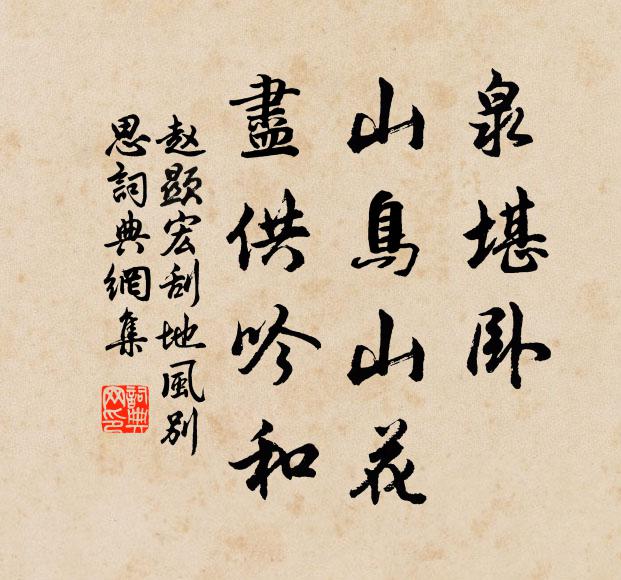 泉堪卧
山鳥山花
盡供吟和
赵顯宏刮地風别
思詞典網集
詞典网印